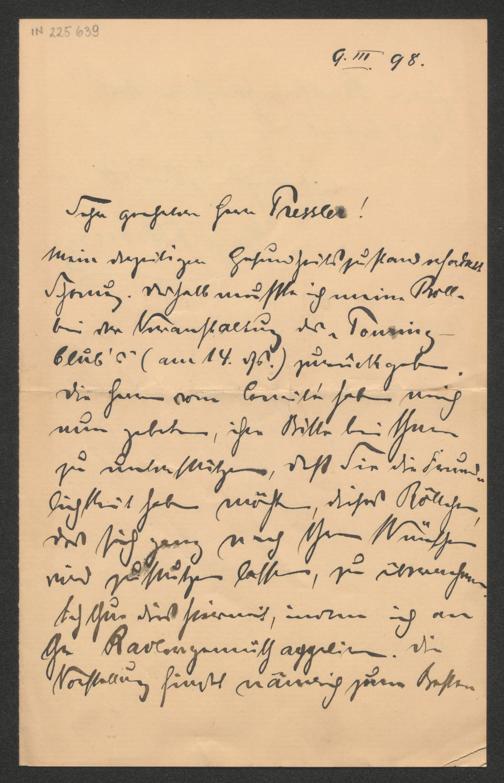 IN 225639
9. III. 98.
Sehr geehrter Herr Tressler!
Mein derzeitiger Gesundheitszustand erfordert
Schonung. Deshalb musste ich meine Roll-
bei der Veranstaltung des „Touring-
Club's" (am 14. ds.) zurückgeben.
Die Herren vom Comité haben mich
nun gebeten, ihre Bitte bei Ihnen
zu unterstützen, daß Sie die Freund-
lichkeit haben möchten, dieses Röllchen,
das sich ganz nach Ihren Wünschen
wird zustutzen lassen, zu übernehmen.
Ich thue dies hiermit, indem ich an
Ihr Radlergemüth appeliere. Die
Vorstellung findet nämlich zum Besten